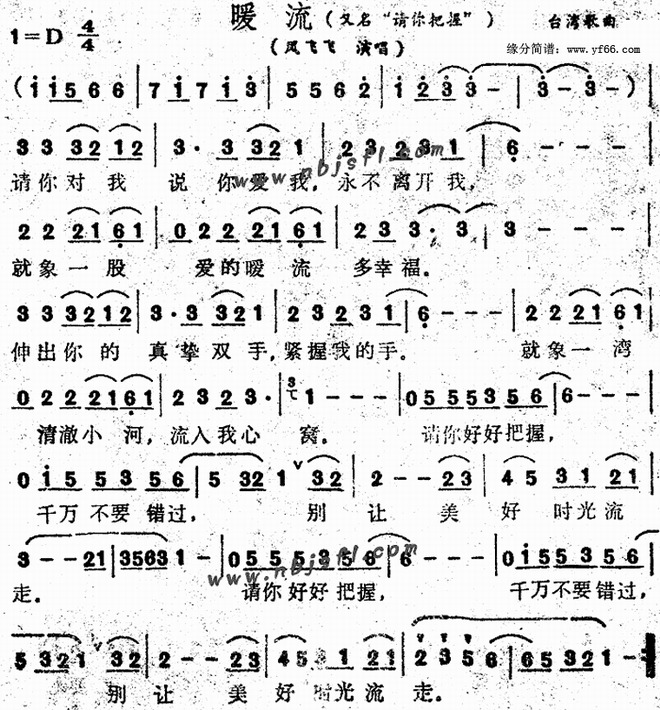 暖 流 (又名“请你把握”)
1=D 4/4
台湾歌曲
(凤飞飞 演唱)
缘分简谱: www.yf66.com
(i i5 6 6 | 7 i 7 i 3 | 5 5 6 2 | i 2 3 3 - | 3 - 3 - )
3 3 32 12 | 3· 3 32 1 | 2 3 2 3 1 | 6 - - -
www.nbjsfl.com
请你对我 说 你爱我, 永不离开我,
2 2 21 61 | 0 2 2 21 61 | 2 3 3· 3 | 3 - - -
就象一股 爱的暖 流 多幸福。
3 3 32 12 | 3·3 32 1 | 2 3 2 3 1 | 6 - - - | 2 2 21 61
伸出你的 真挚双手,紧握我的手。 就象一湾
0 2 2 21 61 | 2 3 2 3· | 3 1 - - - | 0 5 5 5 3 5 6 | 6 - - -
清澈小 河, 流入我心 窝。 请你好好把握,
0 i 5 5 3 5 6 | 5 32 1 v 32 | 2 - - 23 | 4 5 3 1 21
千万不要错过, 别 让 美 好 时光流
3 - - 21 | 3563 1 - | 0 5 5 5 3 5 6 | 6 - - - | 0 i 5 5 3 5 6
www.nbjsfl.com
走。 请你好好把握, 千万不要错过,
5 32 1 v 32 | 2 - - 23 | 45 3 1 21 | 2 3 5 6 | 65 32 1 -
别 让 美 好 时光流 走。